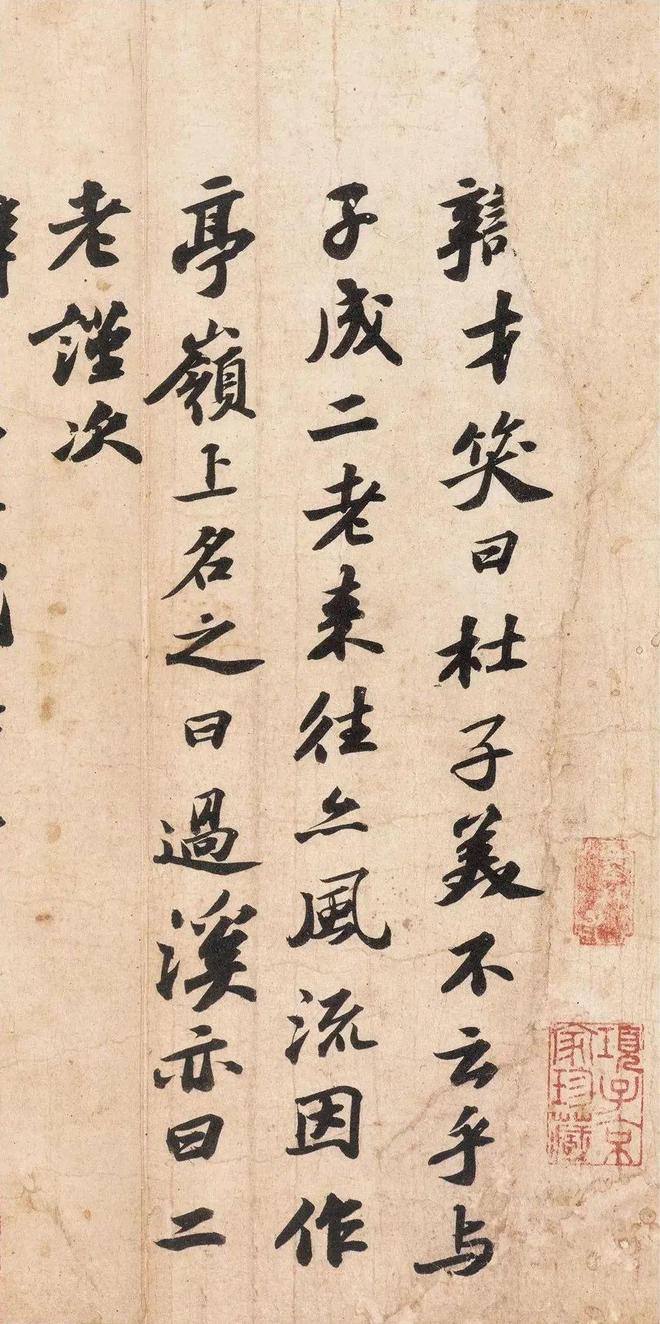 辯才笑曰杜子美不云乎与
子成二老来往亦風流因作
亭嶺上名之曰過溪亦曰二
老謹次
項子京家珍藏